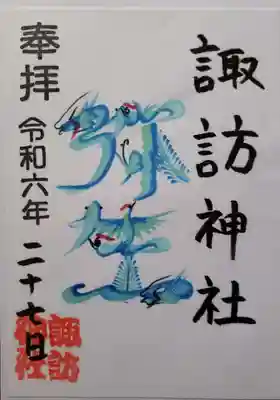 諏訪神社
弥生
奉拝
令和六年
二十七日
諏訪
神社